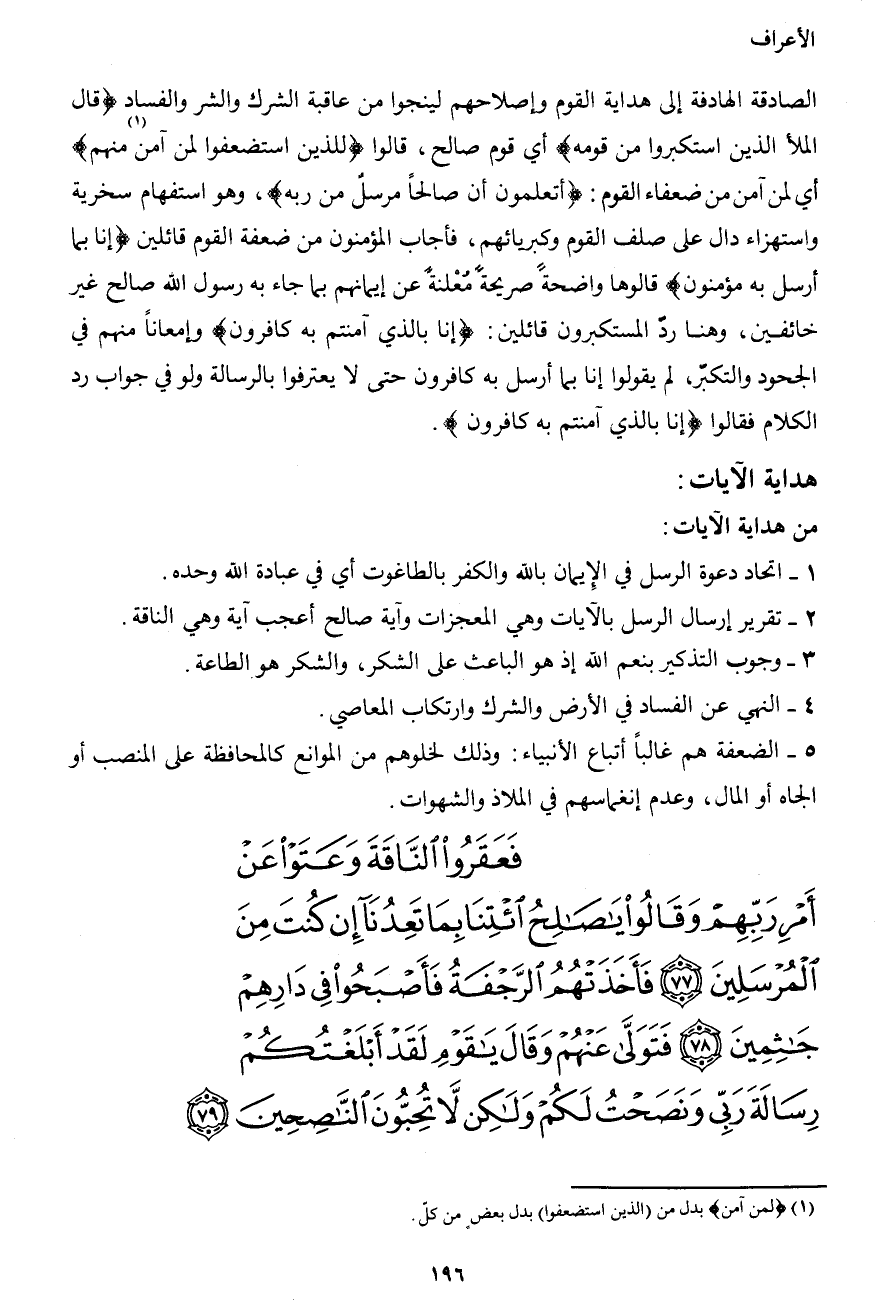 الأعراف
الصادقة الهادفة إلى هداية القوم وإصلاحهم لينجوا من عاقبة الشرك والشر والفساد ﴿قال
الملأ الذين استكبروا من قومه﴾ أي قوم صالح ، قالوا ﴿للذين استضعفوا لمن آمن(١) منهم﴾
أي لمن آمن من ضعفاء القوم : ﴿أتعلمون أن صالحاً مرسلٌ من ربه﴾ ، وهو استفهام سخرية
واستهزاء دال على صلف القوم وكبريائهم ، فأجاب المؤمنون من ضعفة القوم قائلين ﴿إنا بما
أرسل به مؤمنون﴾ قالوها واضحةً صريحةً مُعْلنةً عن إيمانهم بما جاء به رسول الله صالح غير
خائفين ، وهنا ردّ المستكبرون قائلين : ﴿إنا بالذي آمنتم به كافرون﴾ وإمعاناً منهم في
الجحود والتكبّر، لم يقولوا إنا بما أرسل به كافرون حتى لا يعترفوا بالرسالة ولو في جواب رد
الكلام فقالوا ﴿إنا بالذي آمنتم به كافرون ﴾ .
هداية الآيات :
من هداية الآيات :
١ ـ اتحاد دعوة الرسل في الإيمان بالله والكفر بالطاغوت أي في عبادة الله وحده .
٢ ـ تقرير إرسال الرسل بالآيات وهي المعجزات وآية صالح أعجب آية وهي الناقة .
٣ ـ وجوب التذكير بنعم الله إذ هو الباعث على الشكر ، والشكر هو الطاعة .
٤ ـ النهي عن الفساد في الأرض والشرك وارتكاب المعاصي .
٥ ـ الضعفة هم غالباً أتباع الأنبياء : وذلك لخلوهم من الموانع كالمحافظة على المنصب أو
الجاه أو المال ، وعدم إنغماسهم في الملاذ والشهوات .
فَعَقَرُواْ ٱلنَّاقَةَ وَعَتَوۡاْ عَنۡ
أَمۡرِ رَبِّهِمۡ وَقَالُواْ يَٰصَٰلِحُ ٱئۡتِنَا بِمَا تَعِدُنَآ إِن كُنتَ مِنَ
ٱلۡمُرۡسَلِينَ ٧٧ فَأَخَذَتۡهُمُ ٱلرَّجۡفَةُ فَأَصۡبَحُواْ فِي دَارِهِمۡ
جَٰثِمِينَ ٧٨ فَتَوَلَّىٰ عَنۡهُمۡ وَقَالَ يَٰقَوۡمِ لَقَدۡ أَبۡلَغۡتُكُمۡ
رِسَالَةَ رَبِّي وَنَصَحۡتُ لَكُمۡ وَلَٰكِن لَّا تُحِبُّونَ ٱلنَّٰصِحِينَ ٧٩
(١) ﴿لمن آمن﴾ بدل من (الذين استضعفوا) بدل بعضٍ من كلّ .
١٩٦